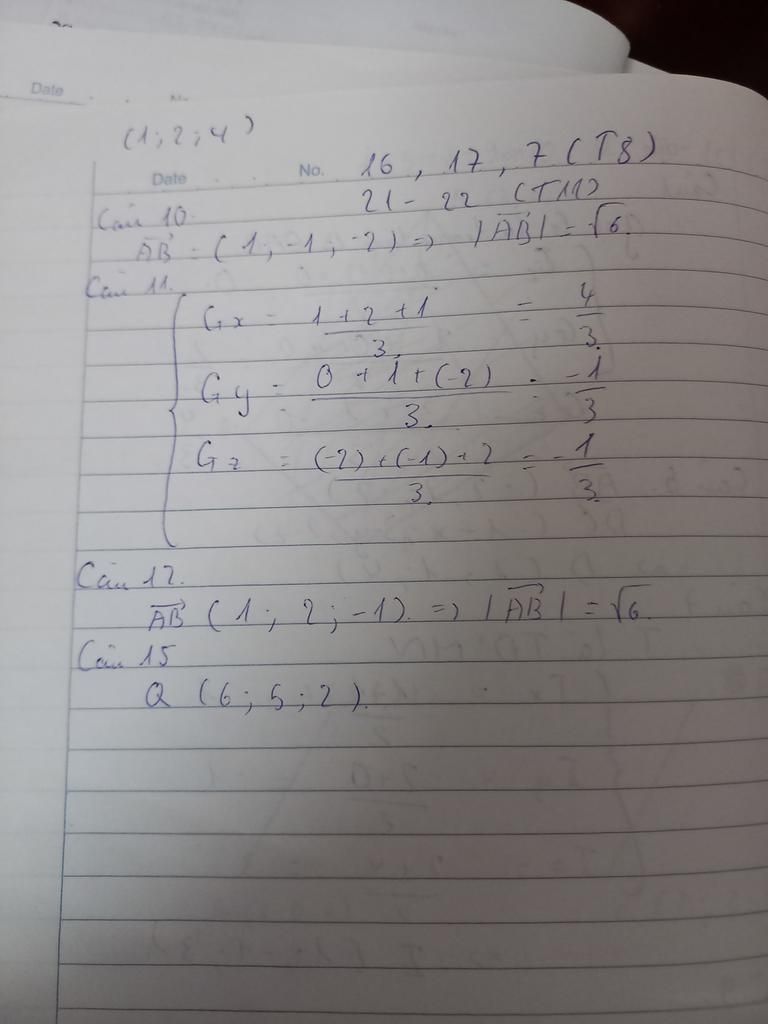 Date
(1; 2; 4)
Date No. 16, 17, 7 (T8)
21 - 22 (T11)
Câu 10.
AB = (1; -1; -2) => |AB| = √6.
Câu 11.
Gx = 1 + 2 + 1 / 3. = 4/3.
Gy = 0 + 1 + (-2) / 3. = -1/3
Gz = (-2) + (-1) + 2 / 3. = -1/3.
Câu 12.
AB (1; 2; -1). => |AB| = √6.
Câu 15
Q (6; 5; 2).